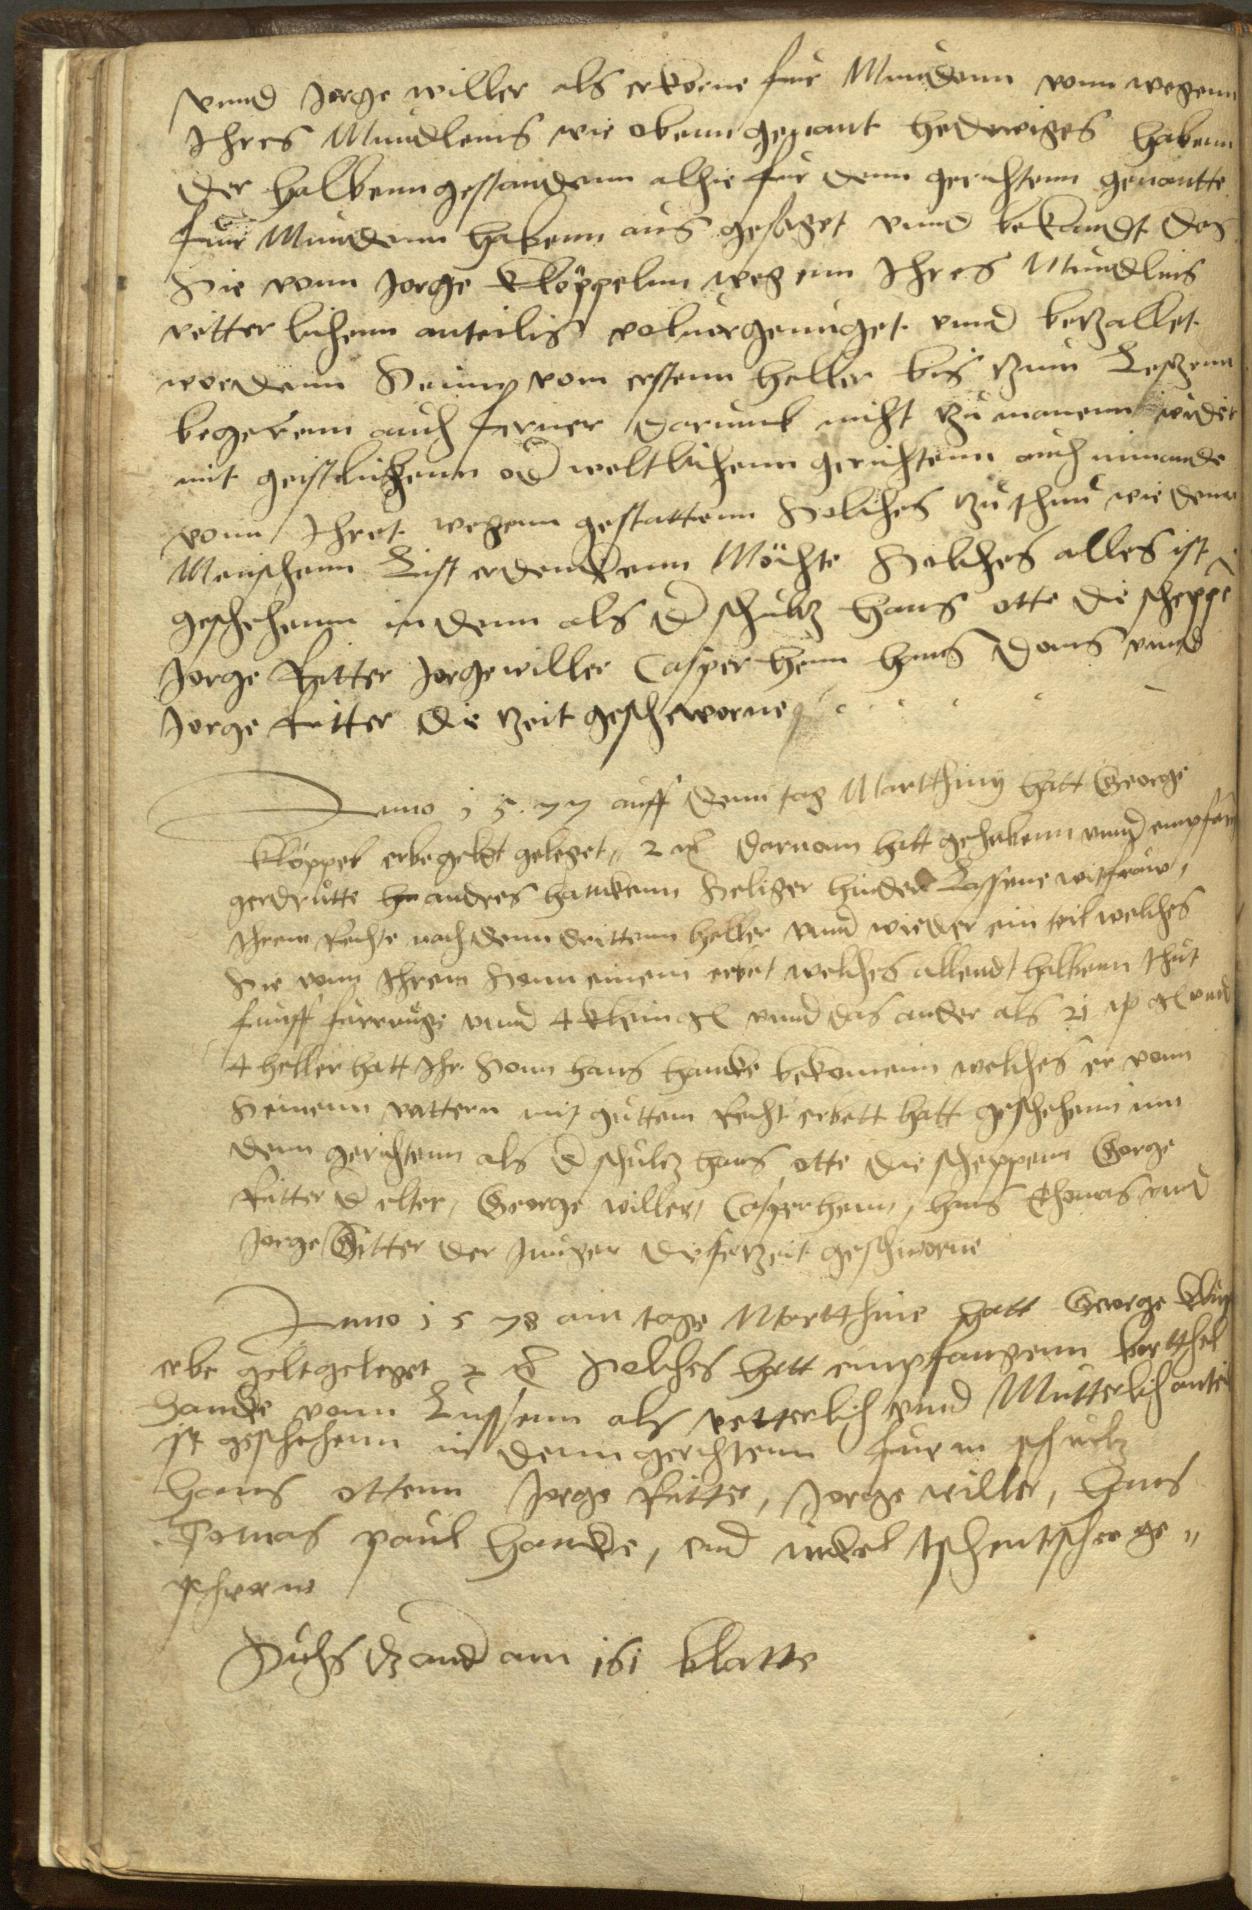 vnnd Jorge willer als erkorne fur Mundenn vonn wegenn
Ihres Mundleins wie obenn genant hedewiges habenn
der halbenn gestandenn alhie fur denn gerichtenn genantte
fur Mundenn habenn aus gesaget vnnd bekandt das
Sie vonn Jorge Klöppelnn wegenn Ihres Mundlins
vetterlichenn anteiliss vol vergenuget vnnd betzallet
wordenn Seinn vom erstenn heller bis tzum Letztenn
begerenn auch ferner darumb nicht tzu manenn wider
mit geistlichenn od weltlichenn gerichtenn auch nimande
vonn Ihret wegenn gestattenn Solches tzu thun wie denn
Menschenn List erdenckenn Möchte Solches alles ist
geschehenn in denn als d schultz hans otte die scheppe
Jorge Ritter Jorge willer Casper hein hans Doms vnnd
Jorge Ritter die tzeit geschworne
Anno 1 5 77 auff denn tag Martthiny hatt George
Klöppel erbegeldt geleget 2 darvonn hatt gehabenn vnnd empfan
gerdrutte andres hanckenn Seliger hinder Lassene witfraw,
Ihrem Rechte nach denn drittenn heller vnnd wieder ein teil welches
Sie vonn Ihrem Sonn einem erbet welches allendthalbenn thut
funff vnnd 4 klein gl vnnd das ander als 21 gl vnd
4 heller hatt Ihr Sonn hans hancke bekomenn welches er vonn
Seinenn vattern mit guttem Recht erbett hatt geschehenn inn
denn gerichtenn als d schultz hans otte die scheppenn Gorge
Ritter d elter, George willer, Casper hein, hans Thomas vnd
Jorge Ritter der Junger dyser tzeit geschworne
Anno 1 5 78 am tage Martthine hatt George
erbe gelt geleget 2 Solches hatt empfangenn bartthel
hancke vonn Lussenn als vetterlich vnnd Mutterlich anteil
ist geschehenn in denn gerichtenn furm schultz
hans ottenn Jorge Ritter, Jorge willer, hans
Tomas paul hancke, vnd nickel tschentscher ge"
schworne
Suchs am 161 blatte